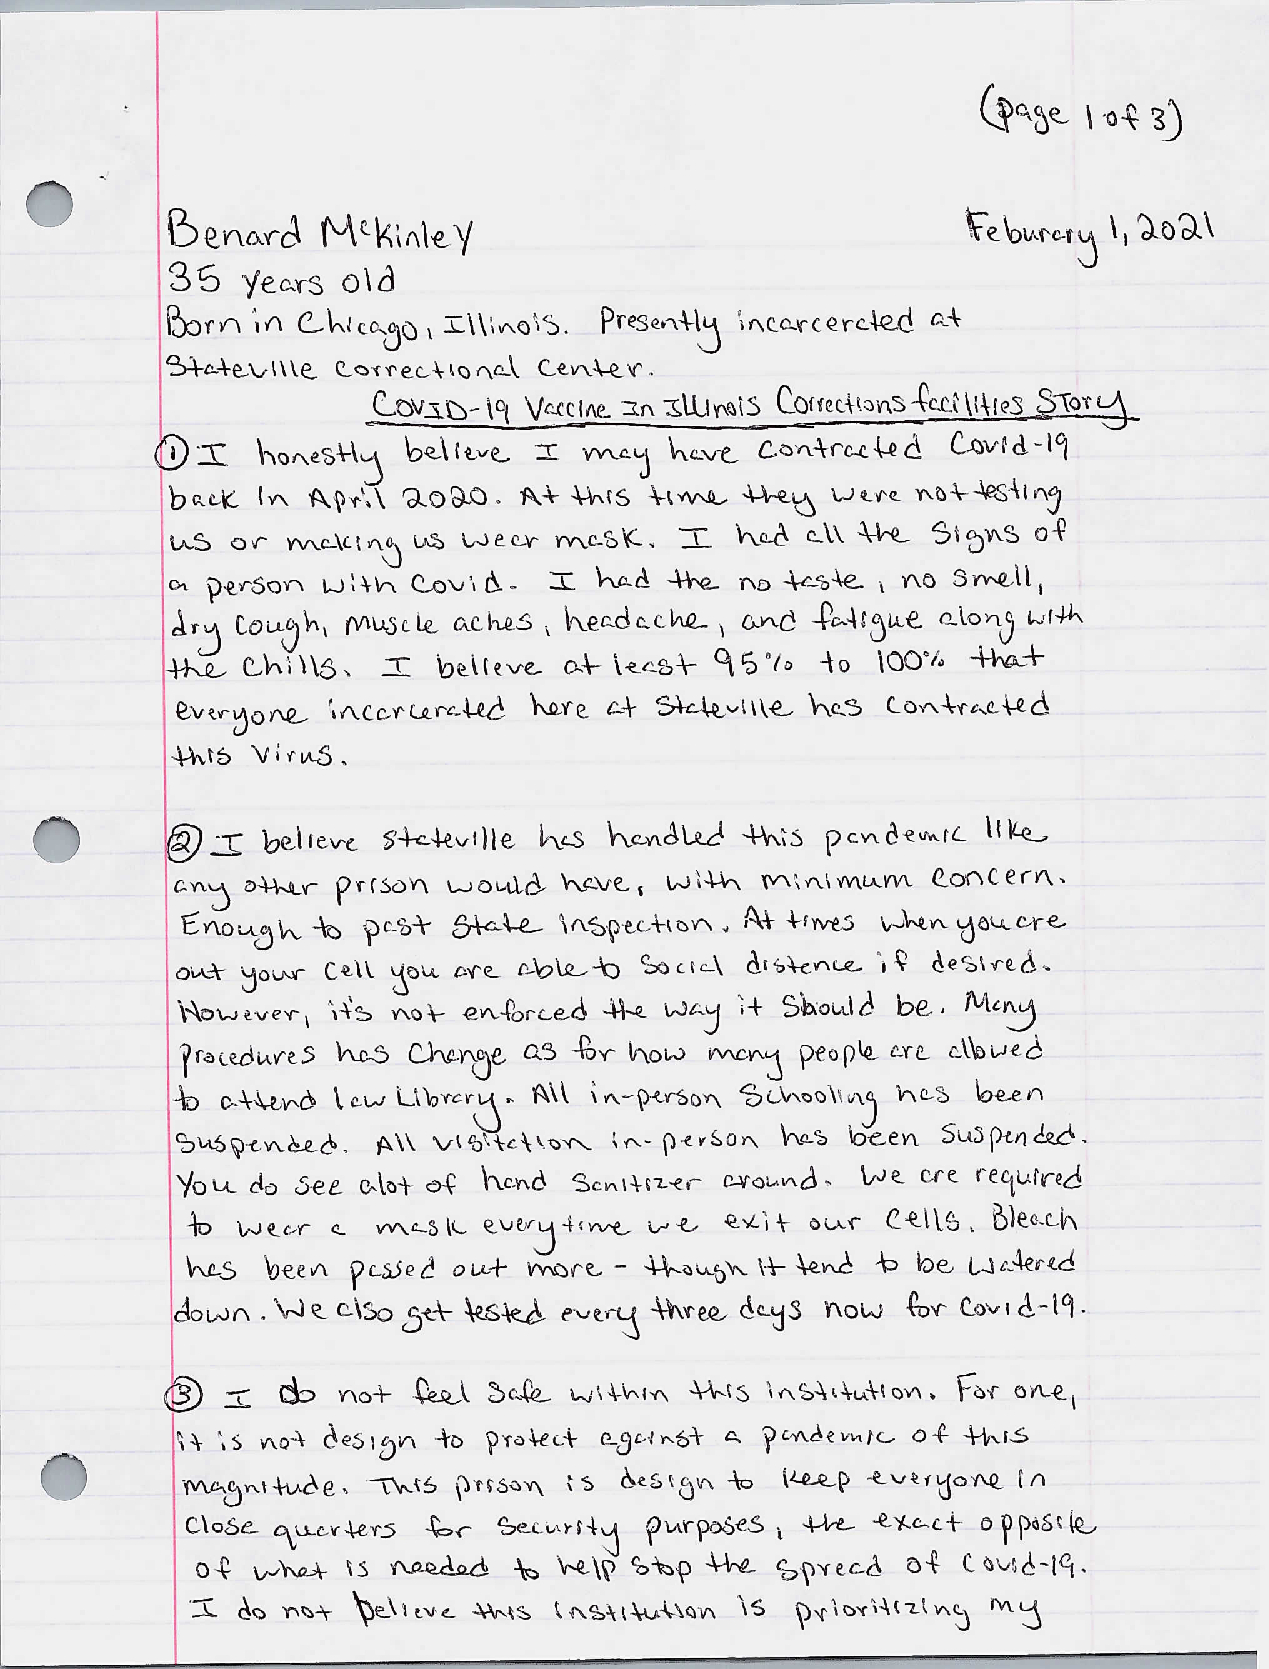 (page 1 of 3)
Benard McKinley
Feburary 1, 2021
35 years old
Born in Chicago, Illinois. Presently incarcerated at
Stateville Correctional Center.
COVID-19 Vaccine In Illinois Corrections facilities Story
① I honestly believe I may have contracted Covid-19
back in April 2020. At this time they were not testing
us or making us wear mask. I had all the signs of
a person with Covid. I had the no taste, no smell,
dry cough, muscle aches, headache, and fatigue along with
the chills. I believe at least 95% to 100% that
everyone incarcerated here at Stateville has contracted
this virus.
② I believe Stateville has handled this pandemic like
any other prison would have, with minimum concern.
Enough to past state inspection. At times when you are
out your cell you are able to social distance if desired.
However, it's not enforced the way it should be. Many
procedures has change as for how many people are allowed
to attend law Library. All in-person schooling has been
suspended. All visitation in-person has been suspended.
You do see alot of hand sanitizer around. We are required
to wear a mask everytime we exit our cells. Bleach
has been passed out more - though it tend to be watered
down. We also get tested every three days now for Covid-19.
③ I do not feel safe within this institution. For one,
it is not design to protect against a pandemic of this
magnitude. This prison is design to keep everyone in
close quarters for security purposes, the exact opposite
of what is needed to help stop the spread of Covid-19.
I do not believe this institution is prioritizing my